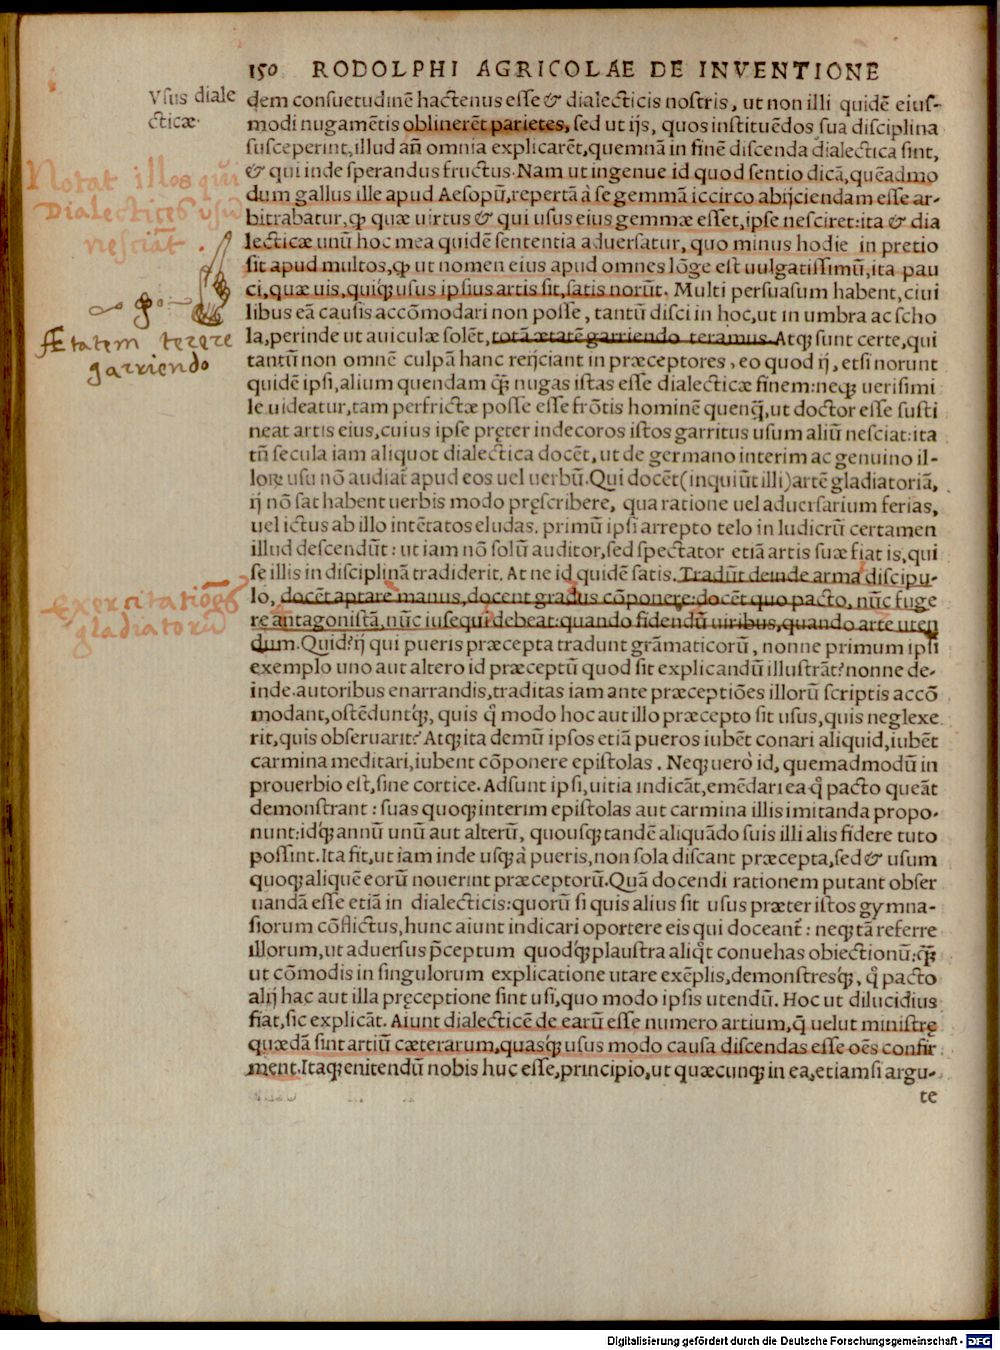 150 RODOLPHI AGRICOLAE DE INVENTIONE
Vsus diale
cticæ.
dem consuetudinē hactenus esse & dialecticis nostris, ut non illi quidē eius-
modi nugamētis oblinerēt parietes, sed ut ijs, quos instituēdos sua disciplina
susceperint, illud an̄ omnia explicarēt, quemnā in finē discenda dialectica sint,
& qui inde sperandus fructus. Nam ut ingenue id quod sentio dicā, quēadmo
dum gallus ille apud Aesopū, repertā à se gemmā iccirco abijciendam esse ar-
bitrabatur, ꝙ quæ uirtus & qui usus eius gemmæ esset, ipse nesciret: ita & dia
lecticæ unū hoc mea quidē sententia aduersatur, quo minus hodie in pretio
sit apud multos, ꝙ ut nomen eius apud omnes lōge est uulgatissimū, ita pau
ci, quæ uis, quisꝗ usus ipsius artis sit, satis norūt. Multi persuasum habent, ciui
libus eā causis accōmodari non posse, tantū disci in hoc, ut in umbra ac scho
la, perinde ut auiculæ solēt, totā ætatē garriendo teramus. Atqꝫ sunt certe, qui
tantū non omnē culpā hanc reijciant in præceptores, eo quod ij, etsi norunt
quidē ipsi, alium quendam ꝗ̄ nugas istas esse dialecticæ finem: neqꝫ uerisimi
le uideatur, tam perfrictæ posse esse frōtis hominē quenꝗ̄, ut doctor esse susti
neat artis eius, cuius ipse pręter indecoros istos garritus usum aliū nesciat: ita
tn̄ secula iam aliquot dialectica docēt, ut de germano interim ac genuino il-
loꝝ usu nō audiat̄ apud eos uel uerbū. Qui docēt (inquiūt illi) artē gladiatoriā,
ij nō sat habent uerbis modo pręscribere, qua ratione uel aduersarium ferias,
uel ictus ab illo intētatos eludas. primū ipsi arrepto telo in ludicrū certamen
illud descendūt: ut iam nō solū auditor, sed spectator etiā artis suæ fiat is, qui
se illis in disciplinā tradiderit. At ne id quidē satis. Tradūt deinde arma discipu-
lo, docēt aptare manus, docent gradus cōponere: docēt quo pacto, nūc fuge
re antagonistā, nūc insequi debeat: quando fidendū uiribus, quando arte uten
dum. Quid? ij qui pueris præcepta tradunt grāmaticorū, nonne primum ipsi
exemplo uno aut altero id præceptū quod sit explicandū illustrāt? nonne de-
inde autoribus enarrandis, traditas iam ante præceptiōes illorū scriptis accō
modant, ostēduntꝗꝫ, quis q̊ modo hoc aut illo præcepto sit usus, quis neglexe
rit, quis obseruarit? Atqꝫ ita demū ipsos etiā pueros iubēt conari aliquid, iubēt
carmina meditari, iubent cōponere epistolas. Neqꝫ uerò id, quemadmodū in
prouerbio est, sine cortice. Adsunt ipsi, uitia indicāt, emēdari ea q̊ pacto queāt
demonstrant: suas quoqꝫ interim epistolas aut carmina illis imitanda propo-
nunt: idqꝫ annū unū aut alterū, quousqꝫ tandē aliquādo suis illi alis fidere tuto
possint. Ita fit, ut iam inde usqꝫ à pueris, non sola discant præcepta, sed & usum
quoqꝫ aliquē eorū nouerint præceptorū. Quā docendi rationem putant obser
uandā esse etiā in dialecticis: quorū si quis alius sit usus præter istos gymna-
siorum cōflictus, hunc aiunt indicari oportere eis qui doceant̄: neqꝫ tā referre
illorum, ut aduersus p̄ceptum quodꝗꝫ plaustra aliq̊t conuehas obiectionū: ꝗ̄
ut cōmodis in singulorum explicatione utare exēplis, demonstresꝗꝫ, q̊ pacto
alij hac aut illa pręceptione sint usi, quo modo ipsis utendū. Hoc ut dilucidius
fiat, sic explicāt. Aiunt dialecticē de earū esse numero artium, q̄ uelut ministrę
quædā sint artiū cæterarum, quasꝗꝫ usus modo causa discendas esse oēs confir
ment. Itaqꝫ enitendū nobis huc esse, principio, ut quæcunqꝫ in ea, etiamsi argu-
te
Notat illos qui
Dialectices usū
nesciāt
Ætatem terere
garriendo
Exercitatiōes
gladiatorū
Digitalisierung gefördert durch die Deutsche Forschungsgemeinschaft - DFG